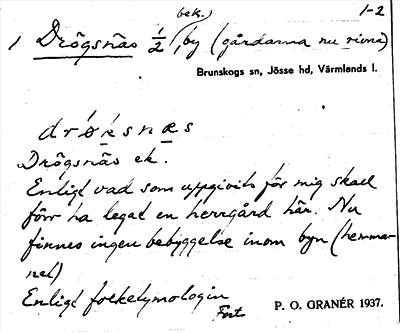 bek.) 1-2
1 Drögsnäs 1/2, by (gårdarna nu rivna)
Brunskogs sn, Jösse hd, Värmlands l.
drøksnæs
Drögsnäs ek.
Enligt vad som uppgivits för mig skall
förr ha legat en herrgård här. Nu
finnes ingen bebyggelse inom byn (hemma-
net)
Enligt folketymologin
Forts
P. O. GRANÉR 1937.